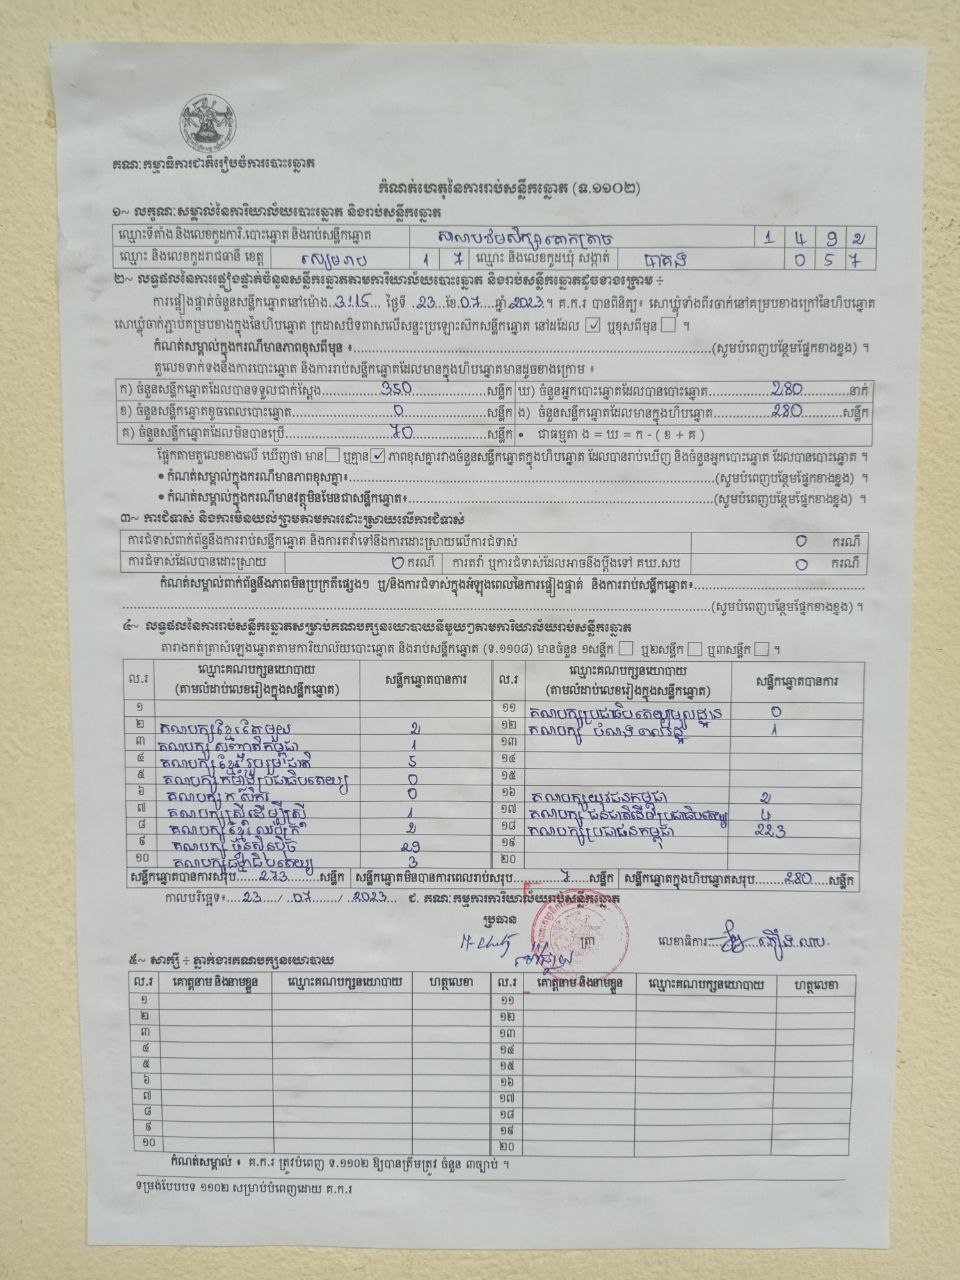 គណៈកម្មាធិការជាតិរៀបចំការបោះឆ្នោត
កំណត់ហេតុនៃការរាប់សន្លឹកឆ្នោត (ទ.១១០២)
១~ លក្ខណៈសម្គាល់នៃការិយាល័យបោះឆ្នោត និងរាប់សន្លឹកឆ្នោត
ឈ្មោះទីតាំង និងលេខកូដការិ.បោះឆ្នោត និងរាប់សន្លឹកឆ្នោត សាលាបឋមសិក្សាគោកត្រាច 1 4 9 2
ឈ្មោះ និងលេខកូដរាជធានី ខេត្ត សៀមរាប 1 7 ឈ្មោះ និងលេខកូដឃុំ សង្កាត់ បាគង 0 5 7
២~ លទ្ធផលនៃការផ្ទៀងផ្ទាត់ចំនួនសន្លឹកឆ្នោតតាមការិយាល័យបោះឆ្នោត និងរាប់សន្លឹកឆ្នោតដូចខាងក្រោម ÷
ការផ្ទៀងផ្ទាត់ចំនួនសន្លឹកឆ្នោតនៅម៉ោង..3:15..ថ្ងៃទី..23..ខែ.07....ឆ្នាំ.2023.។ គ.ក.រ បានពិនិត្យ៖ សោឃ្លុំទាំងពីរចាក់នៅគម្របខាងក្រៅនៃហិបឆ្នោត
សោឃ្លុំចាក់ភ្ជាប់គម្របខាងក្នុងនៃហិបឆ្នោត ក្រដាសបិទពាសលើសន្ទះប្រឡោះស៊កសន្លឹកឆ្នោត នៅដដែល ☑ ឬខុសពីមុន ☐ ។
កំណត់សម្គាល់ក្នុងករណីមានភាពខុសពីមុន ៖.....(សូមបំពេញបន្ថែមផ្នែកខាងខ្នង) ។
តួលេខទាក់ទងនឹងការបោះឆ្នោត និងការរាប់សន្លឹកឆ្នោតដែលមានក្នុងហិបឆ្នោតមានដូចខាងក្រោម ៖
ក) ចំនួនសន្លឹកឆ្នោតដែលបានទទួលជាក់ស្តែង.....350.....សន្លឹក ឃ) ចំនួនអ្នកបោះឆ្នោតដែលបានបោះឆ្នោត.....280.....នាក់
ខ) ចំនួនសន្លឹកឆ្នោតខូចពេលបោះឆ្នោត.....0.....សន្លឹក ង) ចំនួនសន្លឹកឆ្នោតដែលមានក្នុងហិបឆ្នោត.....280.....សន្លឹក
គ) ចំនួនសន្លឹកឆ្នោតដែលមិនបានប្រើ.....70.....សន្លឹក • ជាធម្មតា ង = ឃ = ក - ( ខ + គ )
ផ្អែកតាមតួលេខខាងលើ ឃើញថា មាន ☐ ឬគ្មាន ☑ ភាពខុសគ្នារវាងចំនួនសន្លឹកឆ្នោតក្នុងហិបឆ្នោត ដែលបានរាប់ឃើញ និងចំនួនអ្នកបោះឆ្នោត ដែលបានបោះឆ្នោត ។
• កំណត់សម្គាល់ក្នុងករណីមានភាពខុសគ្នា៖.....(សូមបំពេញបន្ថែមផ្នែកខាងខ្នង) ។
• កំណត់សម្គាល់ក្នុងករណីមានវត្ថុមិនមែនជាសន្លឹកឆ្នោត៖.....(សូមបំពេញបន្ថែមផ្នែកខាងខ្នង) ។
៣~ ការជំទាស់ និងការមិនយល់ព្រមតាមការដោះស្រាយលើការជំទាស់
ការជំទាស់ពាក់ព័ន្ធនឹងការរាប់សន្លឹកឆ្នោត និងការតវ៉ាទៅនឹងការដោះស្រាយលើការជំទាស់ 0 ករណី
ការជំទាស់ដែលបានដោះស្រាយ 0 ករណី ការតវ៉ា ឬការជំទាស់ដែលអាចនឹងប្តឹងទៅ គឃ.សប 0 ករណី
កំណត់សម្គាល់ពាក់ព័ន្ធនឹងភាពមិនប្រក្រតីផ្សេងៗ ឬ/និងការជំទាស់ក្នុងអំឡុងពេលនៃការផ្ទៀងផ្ទាត់ និងការរាប់សន្លឹកឆ្នោត៖.....
.....(សូមបំពេញបន្ថែមផ្នែកខាងខ្នង) ។
៤~ លទ្ធផលនៃការរាប់សន្លឹកឆ្នោតសម្រាប់គណបក្សនយោបាយនីមួយៗតាមការិយាល័យរាប់សន្លឹកឆ្នោត
តារាងកត់ត្រាសំឡេងឆ្នោតតាមការិយាល័យបោះឆ្នោត និងរាប់សន្លឹកឆ្នោត (ទ.១១០៨) មានចំនួន ១សន្លឹក ☐ ឬ២សន្លឹក ☐ ឬ៣សន្លឹក ☐ ។
ល.រ ឈ្មោះគណបក្សនយោបាយ (តាមលំដាប់លេខរៀងក្នុងសន្លឹកឆ្នោត) សន្លឹកឆ្នោតបានការ ល.រ ឈ្មោះគណបក្សនយោបាយ (តាមលំដាប់លេខរៀងក្នុងសន្លឹកឆ្នោត) សន្លឹកឆ្នោតបានការ
១ ១១ គណបក្សប្រជាធិបតេយ្យមូលដ្ឋាន 0
២ គណបក្សខ្មែរតែមួយ 2 ១២ គណបក្ស 1
៣ គណបក្ស សញ្ជាតិកម្ពុជា 1 ១៣
៤ គណបក្សខ្មែររួបរួមជាតិ 5 ១៤
៥ គណបក្សកម្លាំងប្រជាធិបតេយ្យ 0 ១៥
៦ គណបក្ស កសិករ 0 ១៦ គណបក្សយុវជនកម្ពុជា 2
៧ គណបក្សស្ត្រីដើម្បីស្ត្រី 1 ១៧ គណបក្ស ជនជាតិដើមប្រជាធិបតេយ្យ 4
៨ គណបក្សខ្មែរ ឈប់ក្រ 2 ១៨ គណបក្សប្រជាជនកម្ពុជា 223
៩ គណបក្ស ហ្វ៊ុនស៊ិនប៉ិច 29 ១៩
១០ គណបក្សធម្មាធិបតេយ្យ 3 ២០
សន្លឹកឆ្នោតបានការសរុប.....273.....សន្លឹក សន្លឹកឆ្នោតមិនបានការពេលរាប់សរុប.....7.....សន្លឹក សន្លឹកឆ្នោតក្នុងហិបឆ្នោតសរុប.....280.....សន្លឹក
កាលបរិច្ឆេទ៖.....23...../..07...../..2023... ជ. គណៈកម្មការការិយាល័យរាប់សន្លឹកឆ្នោត
ប្រធាន
ត្រា លេខាធិការ.....
៥~ សាក្សី ÷ ភ្នាក់ងារគណបក្សនយោបាយ
ល.រ គោត្តនាម និងនាមខ្លួន ឈ្មោះគណបក្សនយោបាយ ហត្ថលេខា ល.រ គោត្តនាម និងនាមខ្លួន ឈ្មោះគណបក្សនយោបាយ ហត្ថលេខា
១ ១១
២ ១២
៣ ១៣
៤ ១៤
៥ ១៥
៦ ១៦
៧ ១៧
៨ ១៨
៩ ១៩
១០ ២០
កំណត់សម្គាល់ ៖ គ.ក.រ ត្រូវបំពេញ ទ.១១០២ ឱ្យបានត្រឹមត្រូវ ចំនួន ៣ច្បាប់ ។
ទម្រង់បែបបទ ១១០២ សម្រាប់បំពេញដោយ គ.ក.រ